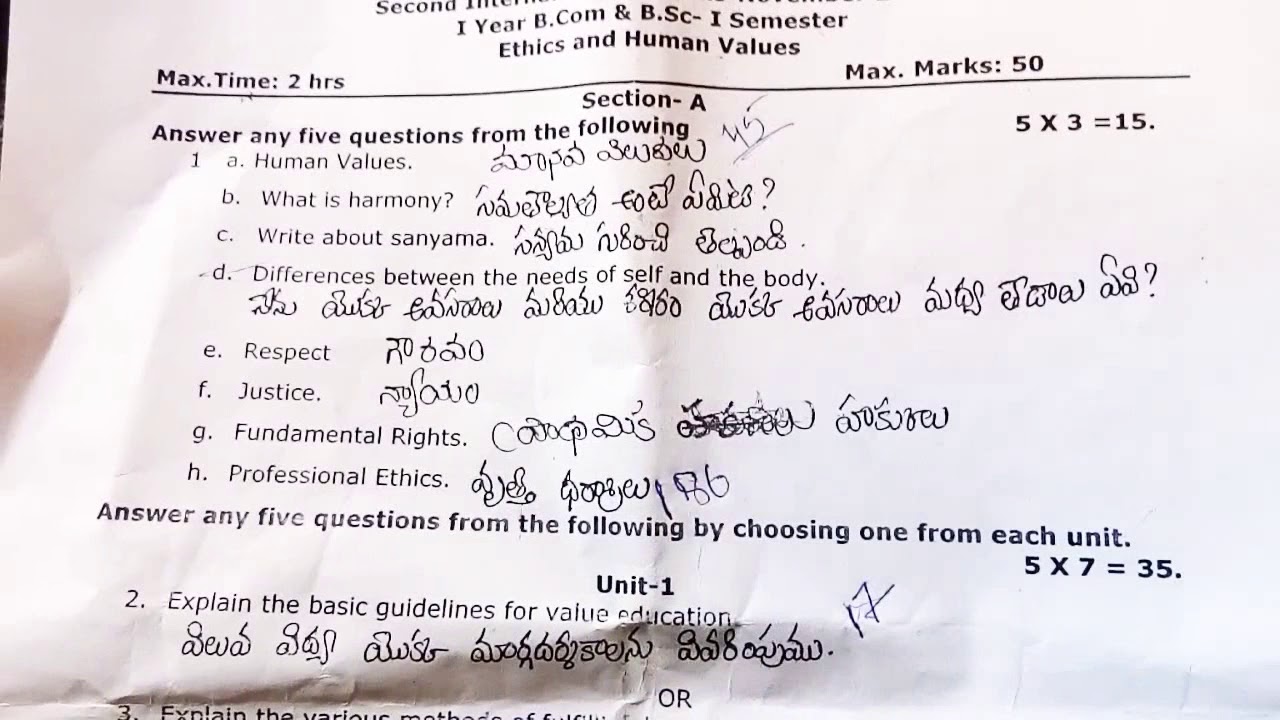 Second
I Year B.Com & B.Sc- I Semester
Ethics and Human Values
Max.Time: 2 hrs Max. Marks: 50
Section- A
Answer any five questions from the following 5 X 3 =15.
1 a. Human Values. మానవ విలువలు
b. What is harmony? సమతౌల్యత అంటే ఏమిటి?
c. Write about sanyama. సన్యమ గురించి తెల్పండి.
d. Differences between the needs of self and the body.
నేను యొక్క అవసరాలు మరియు శరీరం యొక్క అవసరాలు మధ్య తేడాలు ఏవి?
e. Respect గౌరవం
f. Justice. న్యాయం
g. Fundamental Rights. ప్రాథమిక హక్కులు
h. Professional Ethics. వృత్తి ధర్మాలు
Answer any five questions from the following by choosing one from each unit.
5 X 7 = 35.
Unit-1
2. Explain the basic guidelines for value education
విలువ విద్యా యొక్క మార్గదర్శకాలను వివరింపుము.
OR
3. Explain the various methods of